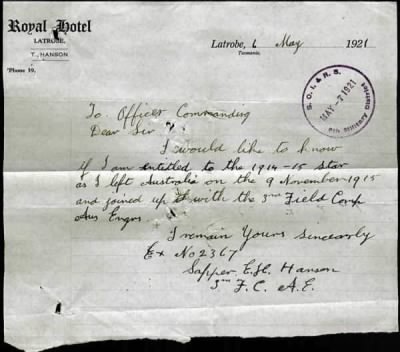 Royal Hotel
LATROBE,
T. HANSON
'Phone 19.
Latrobe, 6 May 1921
Tasmania.
S.O.I. & R.S.
MAY -7 1921
6th Military District
To Officer Commanding
Dear Sir
I would like to know
if I am entitled to the 1914-15 star
as I left Australia on the 9 November 1915
and joined up with the 3rd Field Comp
Aus Engrs.
I remain Yours Sincerely
Ex No 2367
Sapper. E.H. Hanson
3rd F.C. A.E.